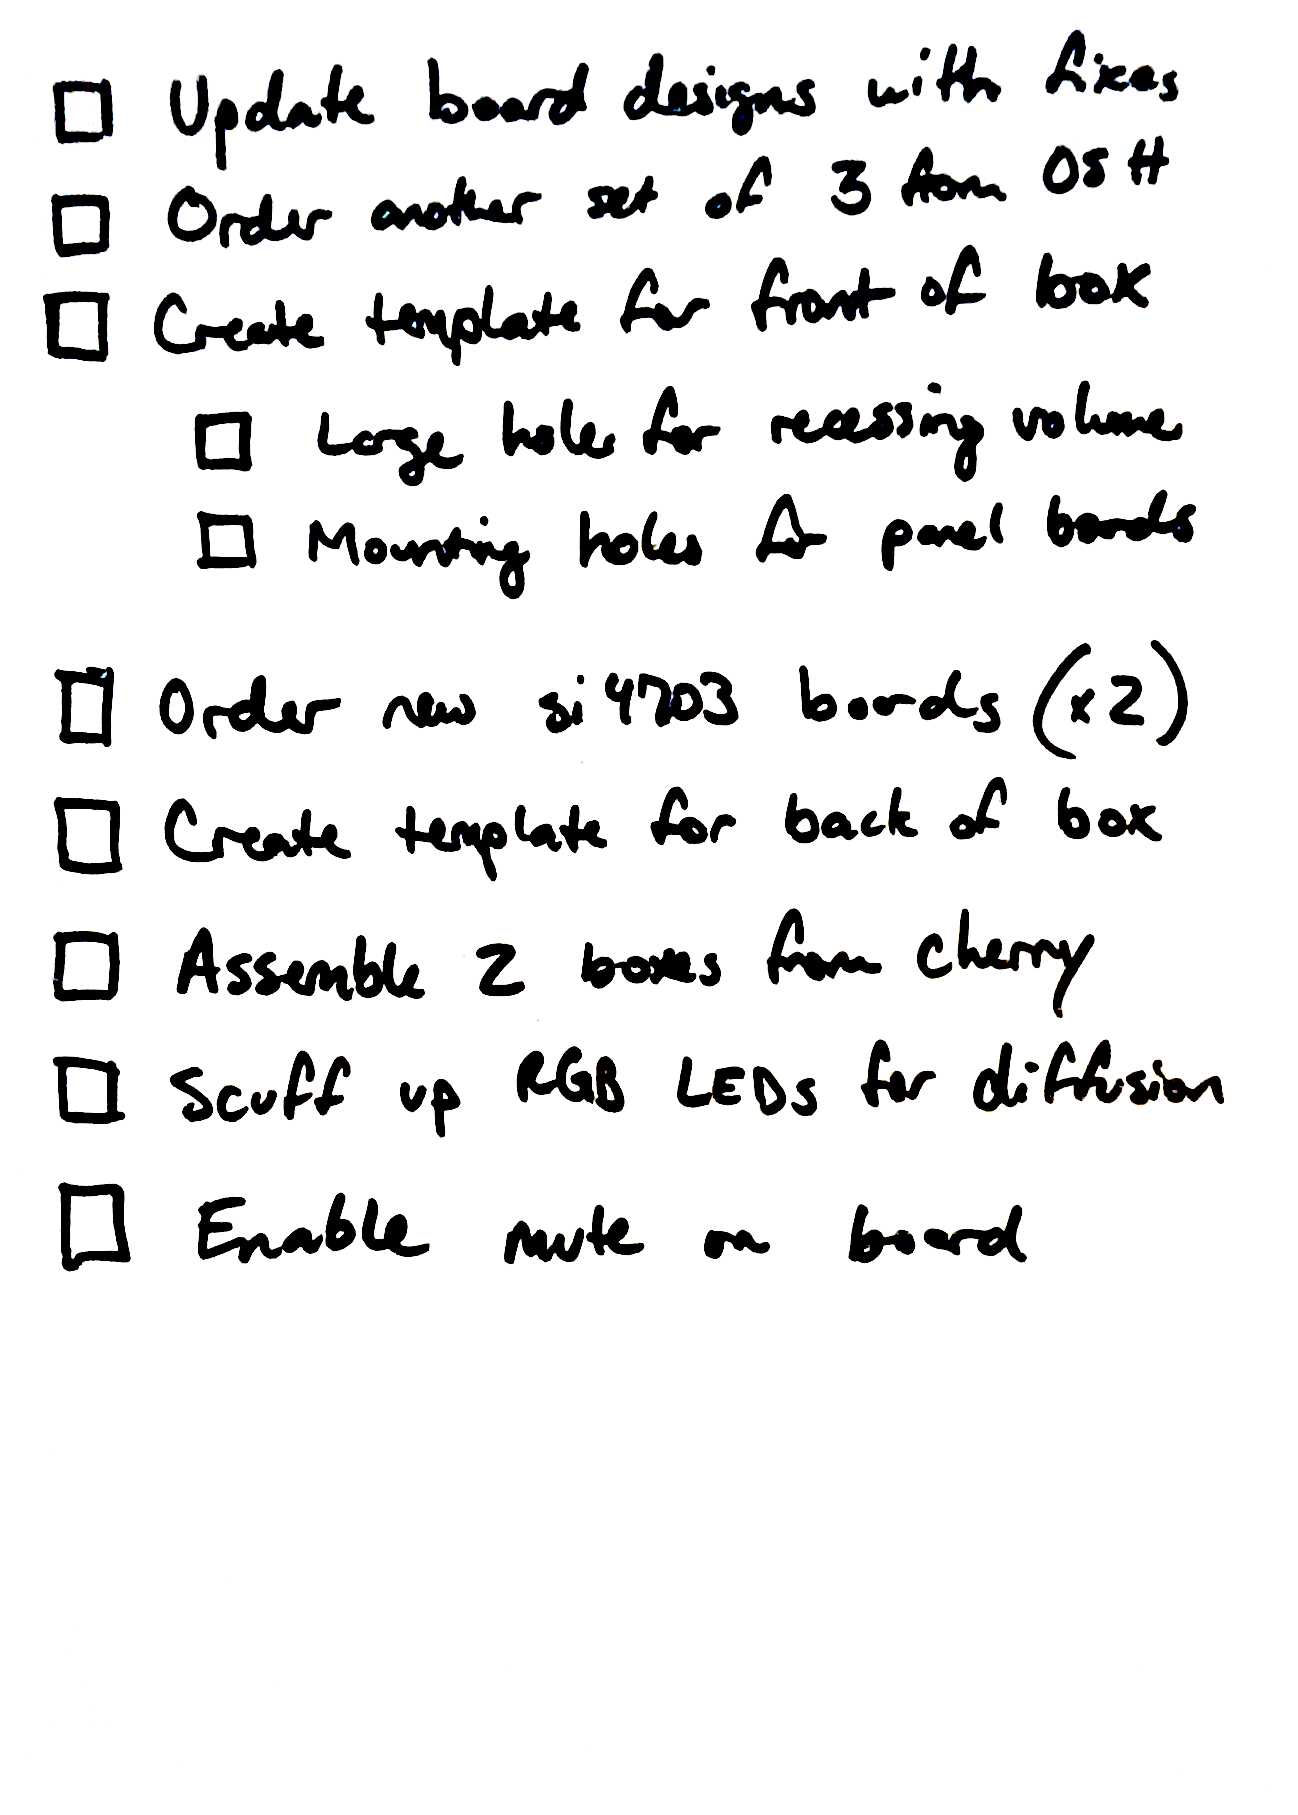 Update board designs with fixes
Order another set of 3 from OSH
Create template for front of box
Large holes for recessing volume
Mounting holes for panel boards
Order new si4703 boards (x2)
Create template for back of box
Assemble 2 boxes from cherry
Scuff up RGB LEDs for diffusion
Enable mute on board